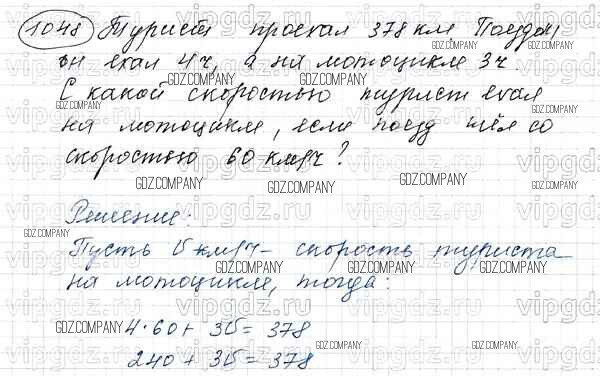 1048 Турист проехал 378 км. Поездом
он ехал 4ч, а на мотоцикле 3ч.
С какой скоростью турист ехал
на мотоцикле, если поезд шёл со
скоростью 60 км/ч?
Решение:
Пусть v км/ч - скорость туриста
на мотоцикле, тогда:
4·60 + 3v = 378
240 + 3v = 378